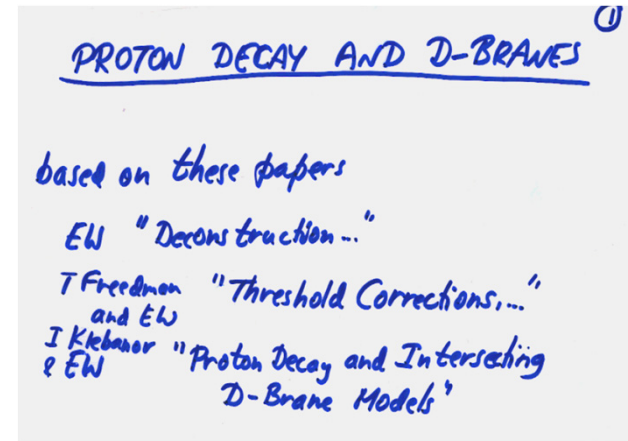 ①
PROTON DECAY AND D-BRANES
based on these papers
EW "Deconstruction..."
T Freedman "Threshold Corrections,..."
and EW
I Klebanov "Proton Decay and Intersecting
& EW D-Brane Models"